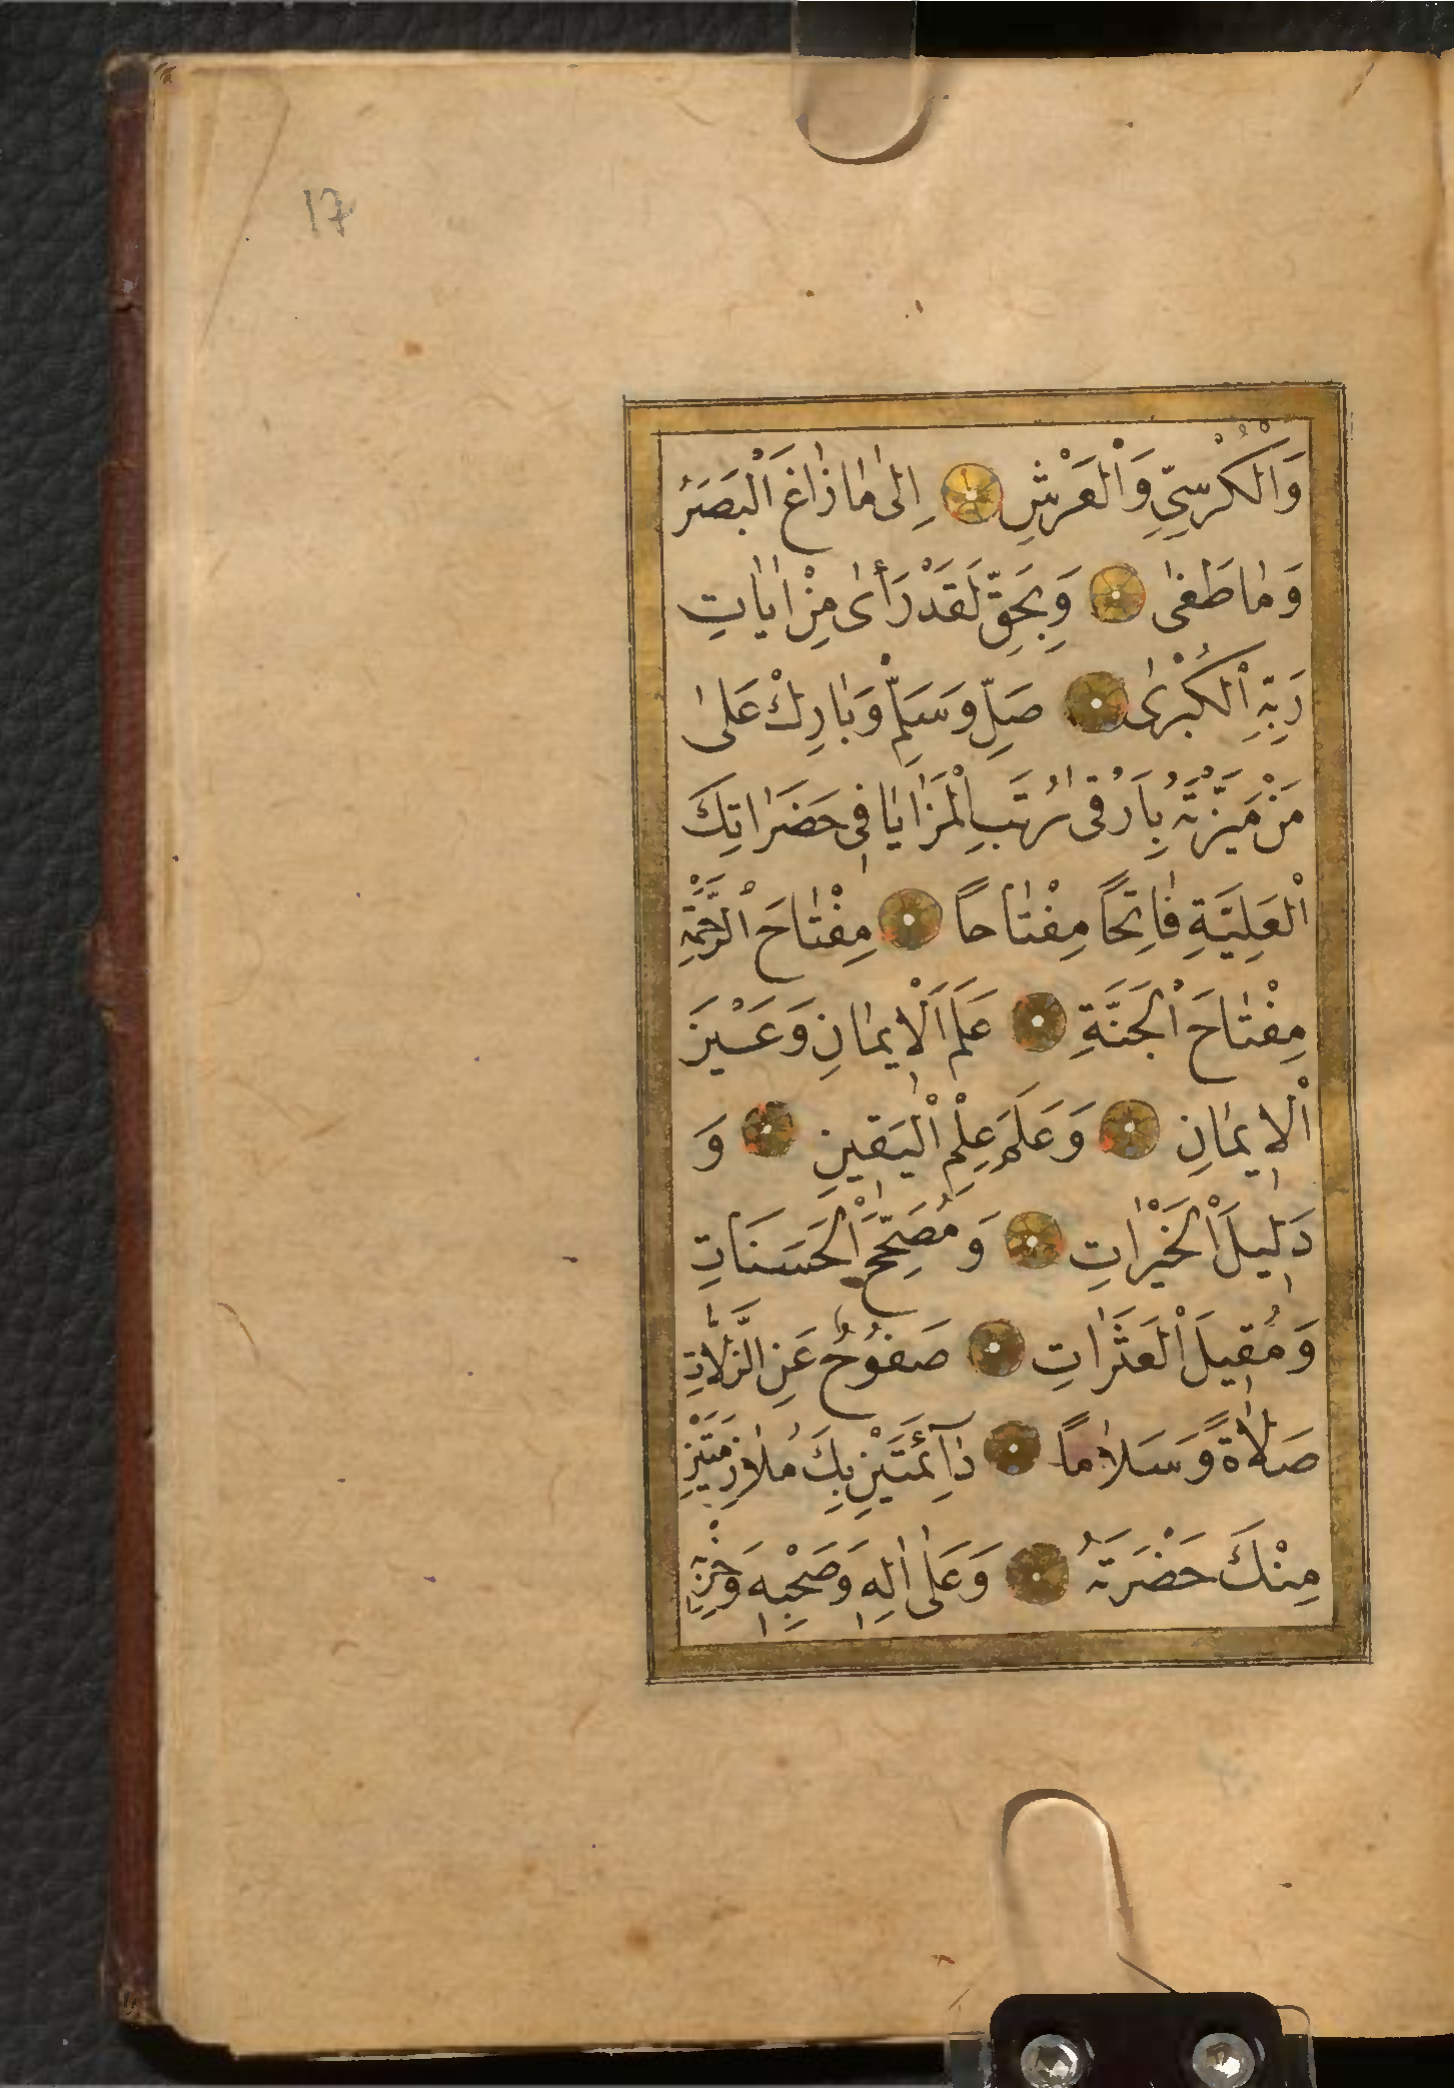 17
وَالْكُرْسِيِّ وَالْعَرْشِ اِلٰى مٰا زٰاغَ الْبَصَرُ
وَمٰا طَغٰى وَبِحَقِّ لَقَدْ رَأٰى مِنْ اٰيٰاتِ
رَبِّهِ الْكُبْرٰى صَلِّ وَسَلِّمْ وَبٰارِكْ عَلٰى
مَنْ مَيَّزْتَهُ بِاَرْقٰى رُتَبِ الْمَزٰايٰا فِى حَضَرٰاتِكَ
الْعَلِيَّةِ فٰاتِحًا مِفْتٰاحًا مِفْتٰاحَ الرَّحْمَةِ
مِفْتٰاحَ الْجَنَّةِ عَلَمَ الْاِيمٰانِ وَعَيْنَ
الْاِيمٰانِ وَعَلَمَ عِلْمِ الْيَقِينِ وَ
دَلِيلَ الْخَيْرٰاتِ وَمُصَحِّحَ الْحَسَنَاتِ
وَمُقِيلَ الْعَثَرٰاتِ صَفُوحٌ عَنِ الزَّلّٰاتِ
صَلٰاةً وَسَلٰامًا دٰائِمَتَيْنِ بِكَ مُلٰازِمَتَيْنِ
مِنْكَ حَضْرَتَهُ وَعَلٰى اٰلِهِ وَصَحْبِهِ وَحِزْبِهِ